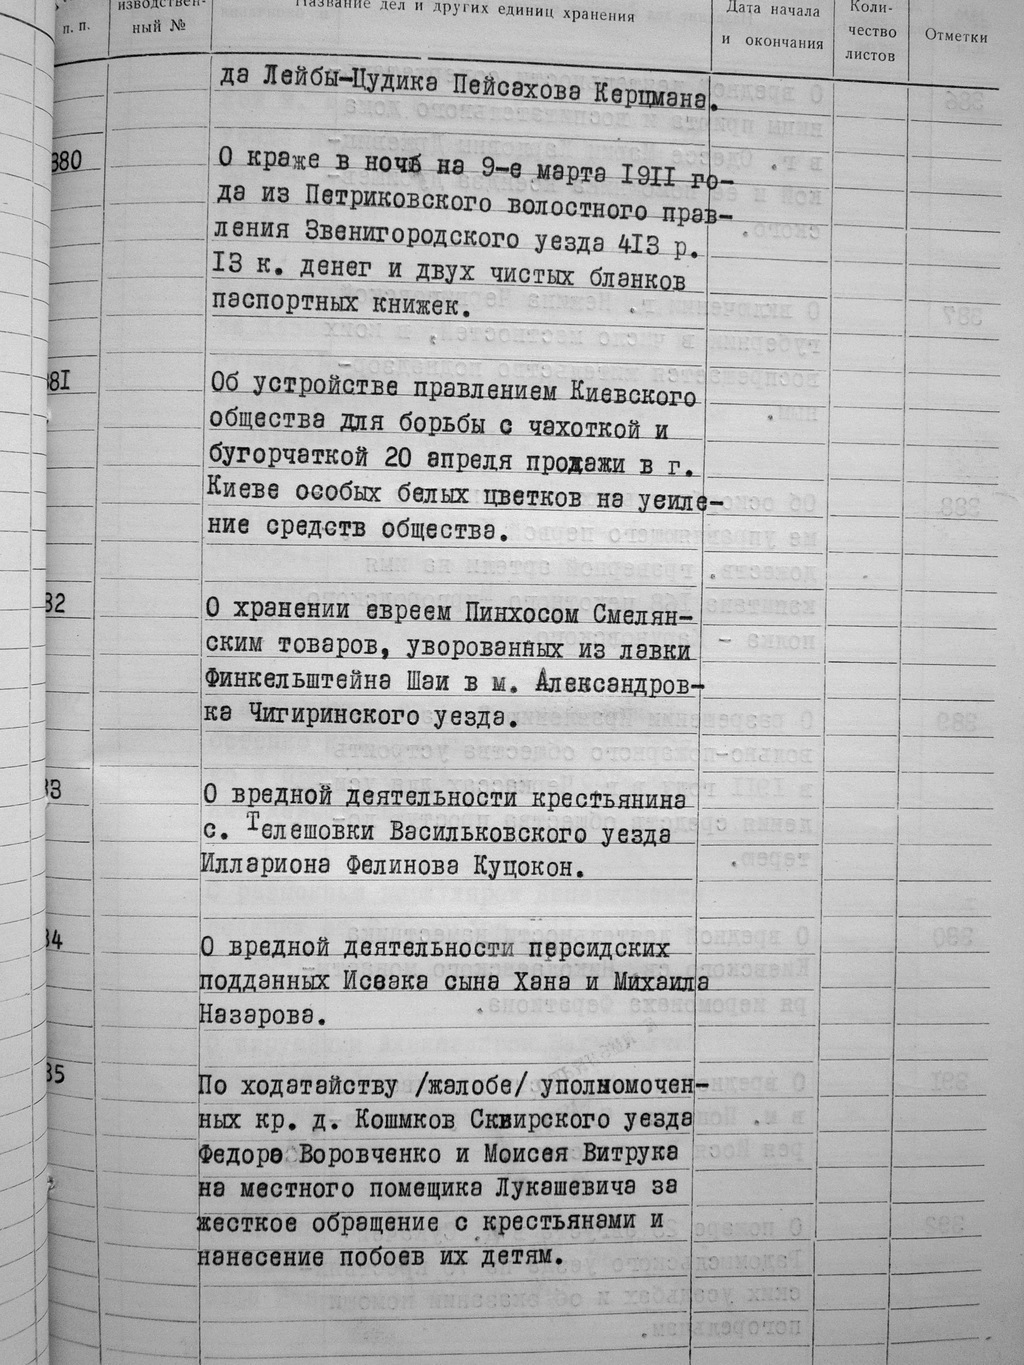 п. п.
изводствен-
ный №
Название дел и других единиц хранения
Дата начала
и окончания
Коли-
чество
листов
Отметки
да Лейбы-Цудика Пейсахова Керцмана.
380
О краже в ночь на 9-е марта 1911 го-
да из Петриковского волостного прав-
ления Звенигородского уезда 413 р.
13 к. денег и двух чистых бланков
паспортных книжек.
381
Об устройстве правлением Киевского
общества для борьбы с чахоткой и
бугорчаткой 20 апреля продажи в г.
Киеве особых белых цветков на усиле-
ние средств общества.
82
О хранении евреем Пинхосом Смелян-
ским товаров, уворованных из лавки
Финкельштейна Шаи в м. Александров-
ка Чигиринского уезда.
83
О вредной деятельности крестьянина
с. Телешовки Васильковского уезда
Иллариона Фелинова Куцокон.
84
О вредной деятельности персидских
подданных Исаака сына Хана и Михаила
Назарова.
85
По ходатайству /жалобе/ уполномочен-
ных кр. д. Кошмков Сквирского уезда
Федора Воровченко и Моисея Витрука
на местного помещика Лукашевича за
жесткое обращение с крестьянами и
нанесение побоев их детям.